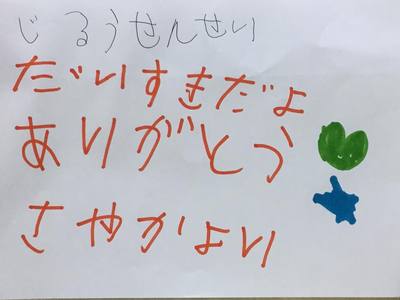 じろうせんせい
だいすきだよ
ありがとう
さやかより